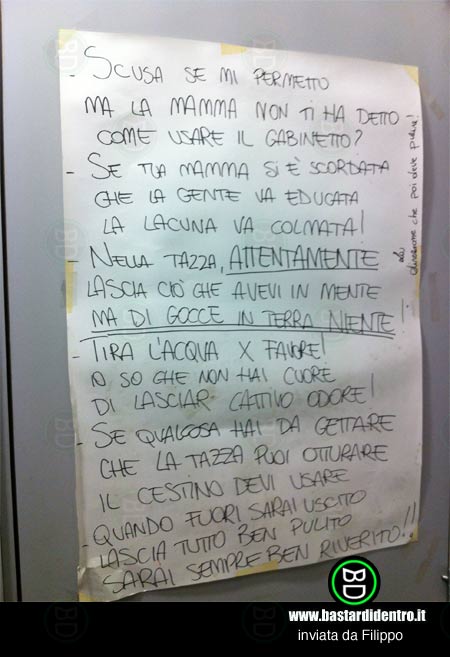 - SCUSA SE MI PERMETTO
MA LA MAMMA NON TI HA DETTO
COME USARE IL GABINETTO?
- SE TUA MAMMA SI È SCORDATA
CHE LA GENTE VA EDUCATA
LA LACUNA VA COLMATA!
- NELLA TAZZA, ATTENTAMENTE
LASCIA CIÒ CHE AVEVI IN MENTE
MA DI GOCCE IN TERRA NIENTE!
- TIRA L'ACQUA X FAVORE!
IO SO CHE NON HAI CUORE
DI LASCIAR CATTIVO ODORE!
- SE QUALCOSA HAI DA GETTARE
CHE LA TAZZA PUOI OTTURARE
IL CESTINO DEVI USARE
- QUANDO FUORI SARAI USCITO
LASCIA TUTTO BEN PULITO
SARAI SEMPRE BEN RIVERITO!!
che poi deve pulire!
BD
www.bastardidentro.it
inviata da Filippo